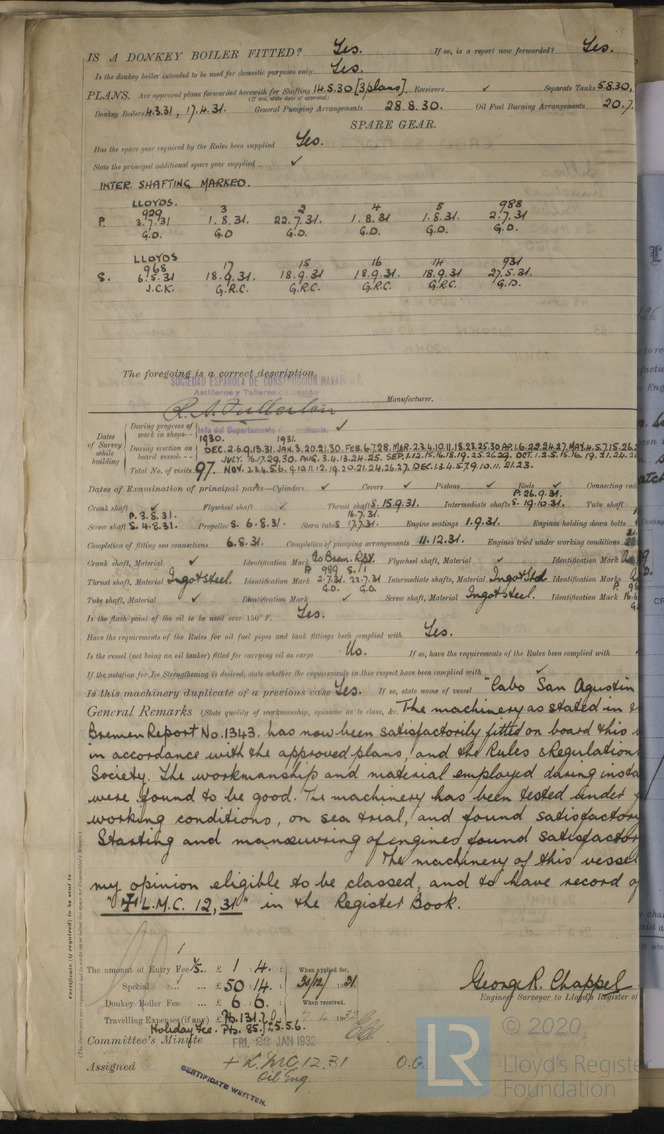 IS A DONKEY BOILER FITTED? Yes. If so, is a report now forwarded? Yes.
Is the donkey boiler intended to be used for domestic purposes only Yes.
PLANS. Are approved plans forwarded herewith for Shafting 14.5.30 [3 plans] Receivers ✓ Separate Tanks 5.8.30,
(If not, state date of approval)
Donkey Boilers 4.3.31, 17.4.31. General Pumping Arrangements 28.8.30. Oil Fuel Burning Arrangements 20.7.
SPARE GEAR.
Has the spare gear required by the Rules been supplied Yes.
State the principal additional spare gear supplied ✓
INTER SHAFTING MARKED.
LLOYDS.
929 3 2 4 5 988
P. 3.7.31 1.8.31. 22.7.31. 1.8.31 1.8.31. 2.7.31
G.D. G.D G.D. G.D. G.D. G.D.
LLOYDS
968 17 15 16 14 931
S. 6.5.31 18.9.31. 18.9.31 18.9.31. 18.9.31 27.5.31.
J.C.K. G.R.C. G.R.C. G.R.C. G.R.C. G.D.
The foregoing is a correct description,
SOCIEDAD ESPAÑOLA DE CONSTRUCCION NAVAL
Astilleros y Talleres
Manufacturer.
Jefe del Departamento
Dates of Survey while building
During progress of work in shops--
During erection on board vessel---
Total No. of visits 97.
1930. 1931.
DEC. 2.6.9.13.31. JAN. 3.20.21.30. FEB. 6.7.28. MAR. 2.3.4.10.11.18.23.25.30 APR. 1.6.22.24.27. MAY. 4.5.7.15.26
NOV. 2.3.4.5.6.9.10.11.12.19.20.21.24.26.27. DEC. 1.3.4.5.7.9.10.11.21.23.
Dates of Examination of principal parts—Cylinders ✓ Covers ✓ Pistons ✓ Rods ✓ Connecting rods
Crank shaft ✓ Flywheel shaft ✓ Thrust shaft S. 15.9.31. Intermediate shafts P. 26.9.31. S. 19.10.31. Tube shaft
Screw shaft P. 3.8.31. S. 4.8.31. Propeller S. 6.8.31. Stern tube 16.7.31. 17.7.31. Engine seatings 1.9.31. Engines holding down bolts
Completion of fitting sea connections 6.8.31. Completion of pumping arrangements 11.12.31. Engines tried under working conditions
Crank shaft, Material ✓ Identification Mark Flywheel shaft, Material ✓ Identification Mark
Thrust shaft, Material Ingot Steel. Identification Mark P. 989 S. 11 2.7.31. 22.7.31 G.D. G.D. Intermediate shafts, Material Ingot Stl. Identification Marks
Tube shaft, Material ✓ Identification Mark ✓ Screw shaft, Material Ingot Steel. Identification Mark
Is the flash point of the oil to be used over 150° F. Yes.
Have the requirements of the Rules for oil fuel pipes and tank fittings been complied with Yes.
Is the vessel (not being an oil tanker) fitted for carrying oil as cargo No. If so, have the requirements of the Rules been complied with
If the notation for Ice Strengthening is desired, state whether the requirements in this respect have been complied with ✓
Is this machinery duplicate of a previous case Yes. If so, state name of vessel "Cabo San Agustin
General Remarks (State quality of workmanship, opinions as to class, &c. The machinery as stated in
Bremen Report No. 1343. has now been satisfactorily fitted on board this
in accordance with the approved plans, and the Rules & Regulation
Society. The workmanship and material employed during insta
were found to be good. The machinery has been tested under
working conditions, on sea trial, and found satisfactory
Starting and manoeuvring of engines found satisfactor
The machinery of this vessel
my opinion eligible to be classed, and to have record of
"✠ L.M.C. 12,31" in the Register Book.
Certificate (if required) to be sent to
The amount of Entry Fee £ 1 : 4. When applied for,
Special £ 50 : 14. 30/12/31.
Donkey Boiler Fee £ 6 : 6. When received,
Travelling Expenses (if any) £ Pts. 131.
Holiday Fee. Pts. 85. / £5.5.6.
George R. Chappel
Engineer Surveyor to Lloyd's Register of
Committee's Minute FRI. 22 JAN 1932
Assigned + L.M.C. 12.31 O.G.
Oil Eng.
CERTIFICATE WRITTEN.
LR © 2020
Lloyd's Register
Foundation